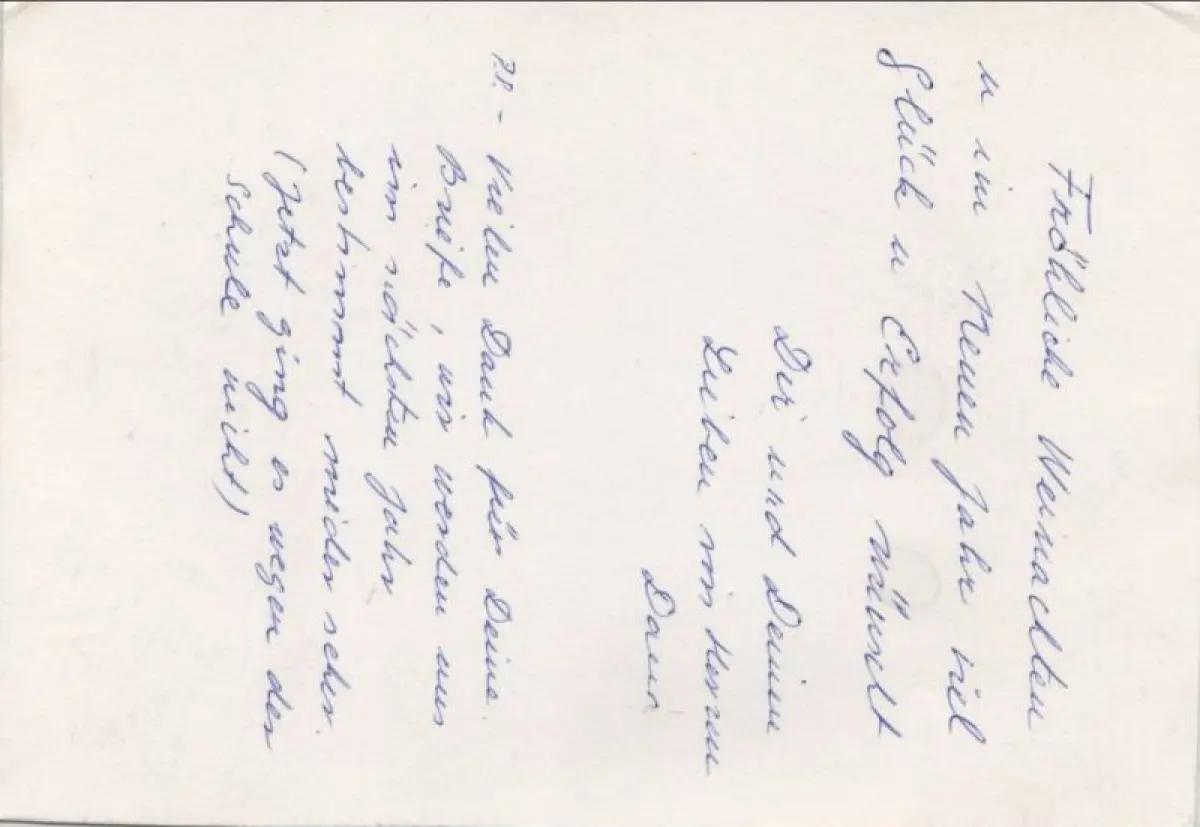 Fröhliche Weinachten
u im Neuen Jahr viel
Glück u Erfolg wünscht
Dir und Deinen
Lieben vom Herzen
Dana
P.S. - Vielen Dank für Deine
Briefe, wir werden uns
im nächsten Jahr
bestimmt wieder sehen.
(Jetzt ging es wegen der
Schule nicht)